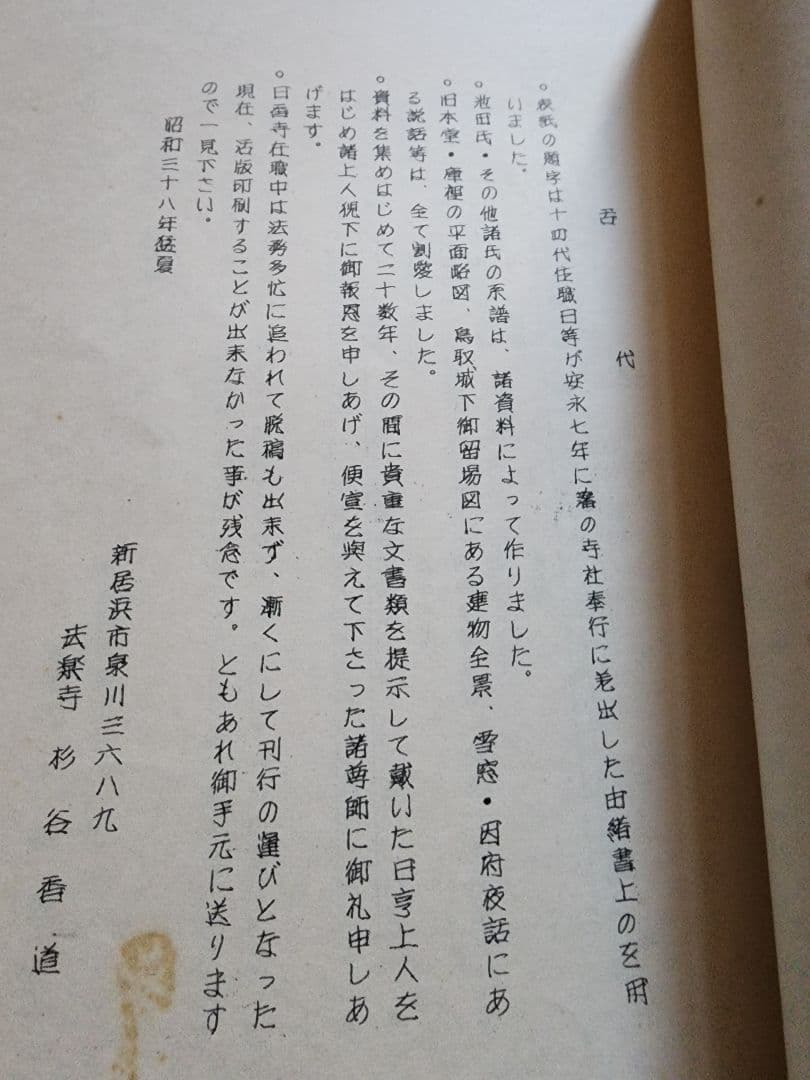 吾 代
○表紙の題字は十四代住職日等が安永七年に藩の寺社奉行に差出した由緒書上のを用
いました。
○池田氏・その他諸氏の系譜は、諸資料によって作りました。
○旧本堂・庫裡の平面略図、鳥取城下御留場図にある建物全景、雪窓・因府夜話にあ
る説話等は、全て割愛しました。
○資料を集めはじめて二十数年、その間に貴重な文書類を提示して戴いた日亨上人を
はじめ諸上人猊下に御報恩を申しあげ、便宜を與えて下さった諸尊師に御礼申しあ
げます。
○日香寺在職中は法務多忙に追われて脱稿も出来ず、漸くにして刊行の運びとなった
現在、活版印刷することが出来なかった事が残念です。ともあれ御手元に送ります
ので一見下さい。
昭和三十八年猛夏
新居浜市泉川三六八九
法楽寺 杉谷香道